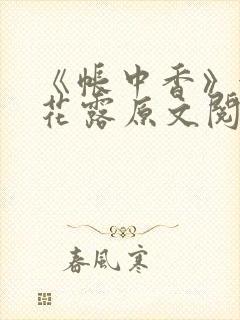 《帐中香》
花露原文阅
春风寒